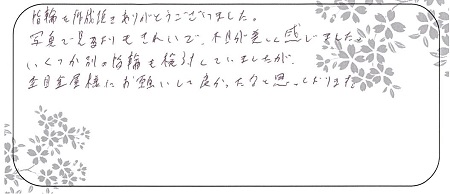 指輪を作成頂きありがとうございました。
写真で見るよりもきれいで、大変美しく感じました。
いくつか別の指輪も検討していましたが、
杢目金屋様にお願いして良かったなと思っております